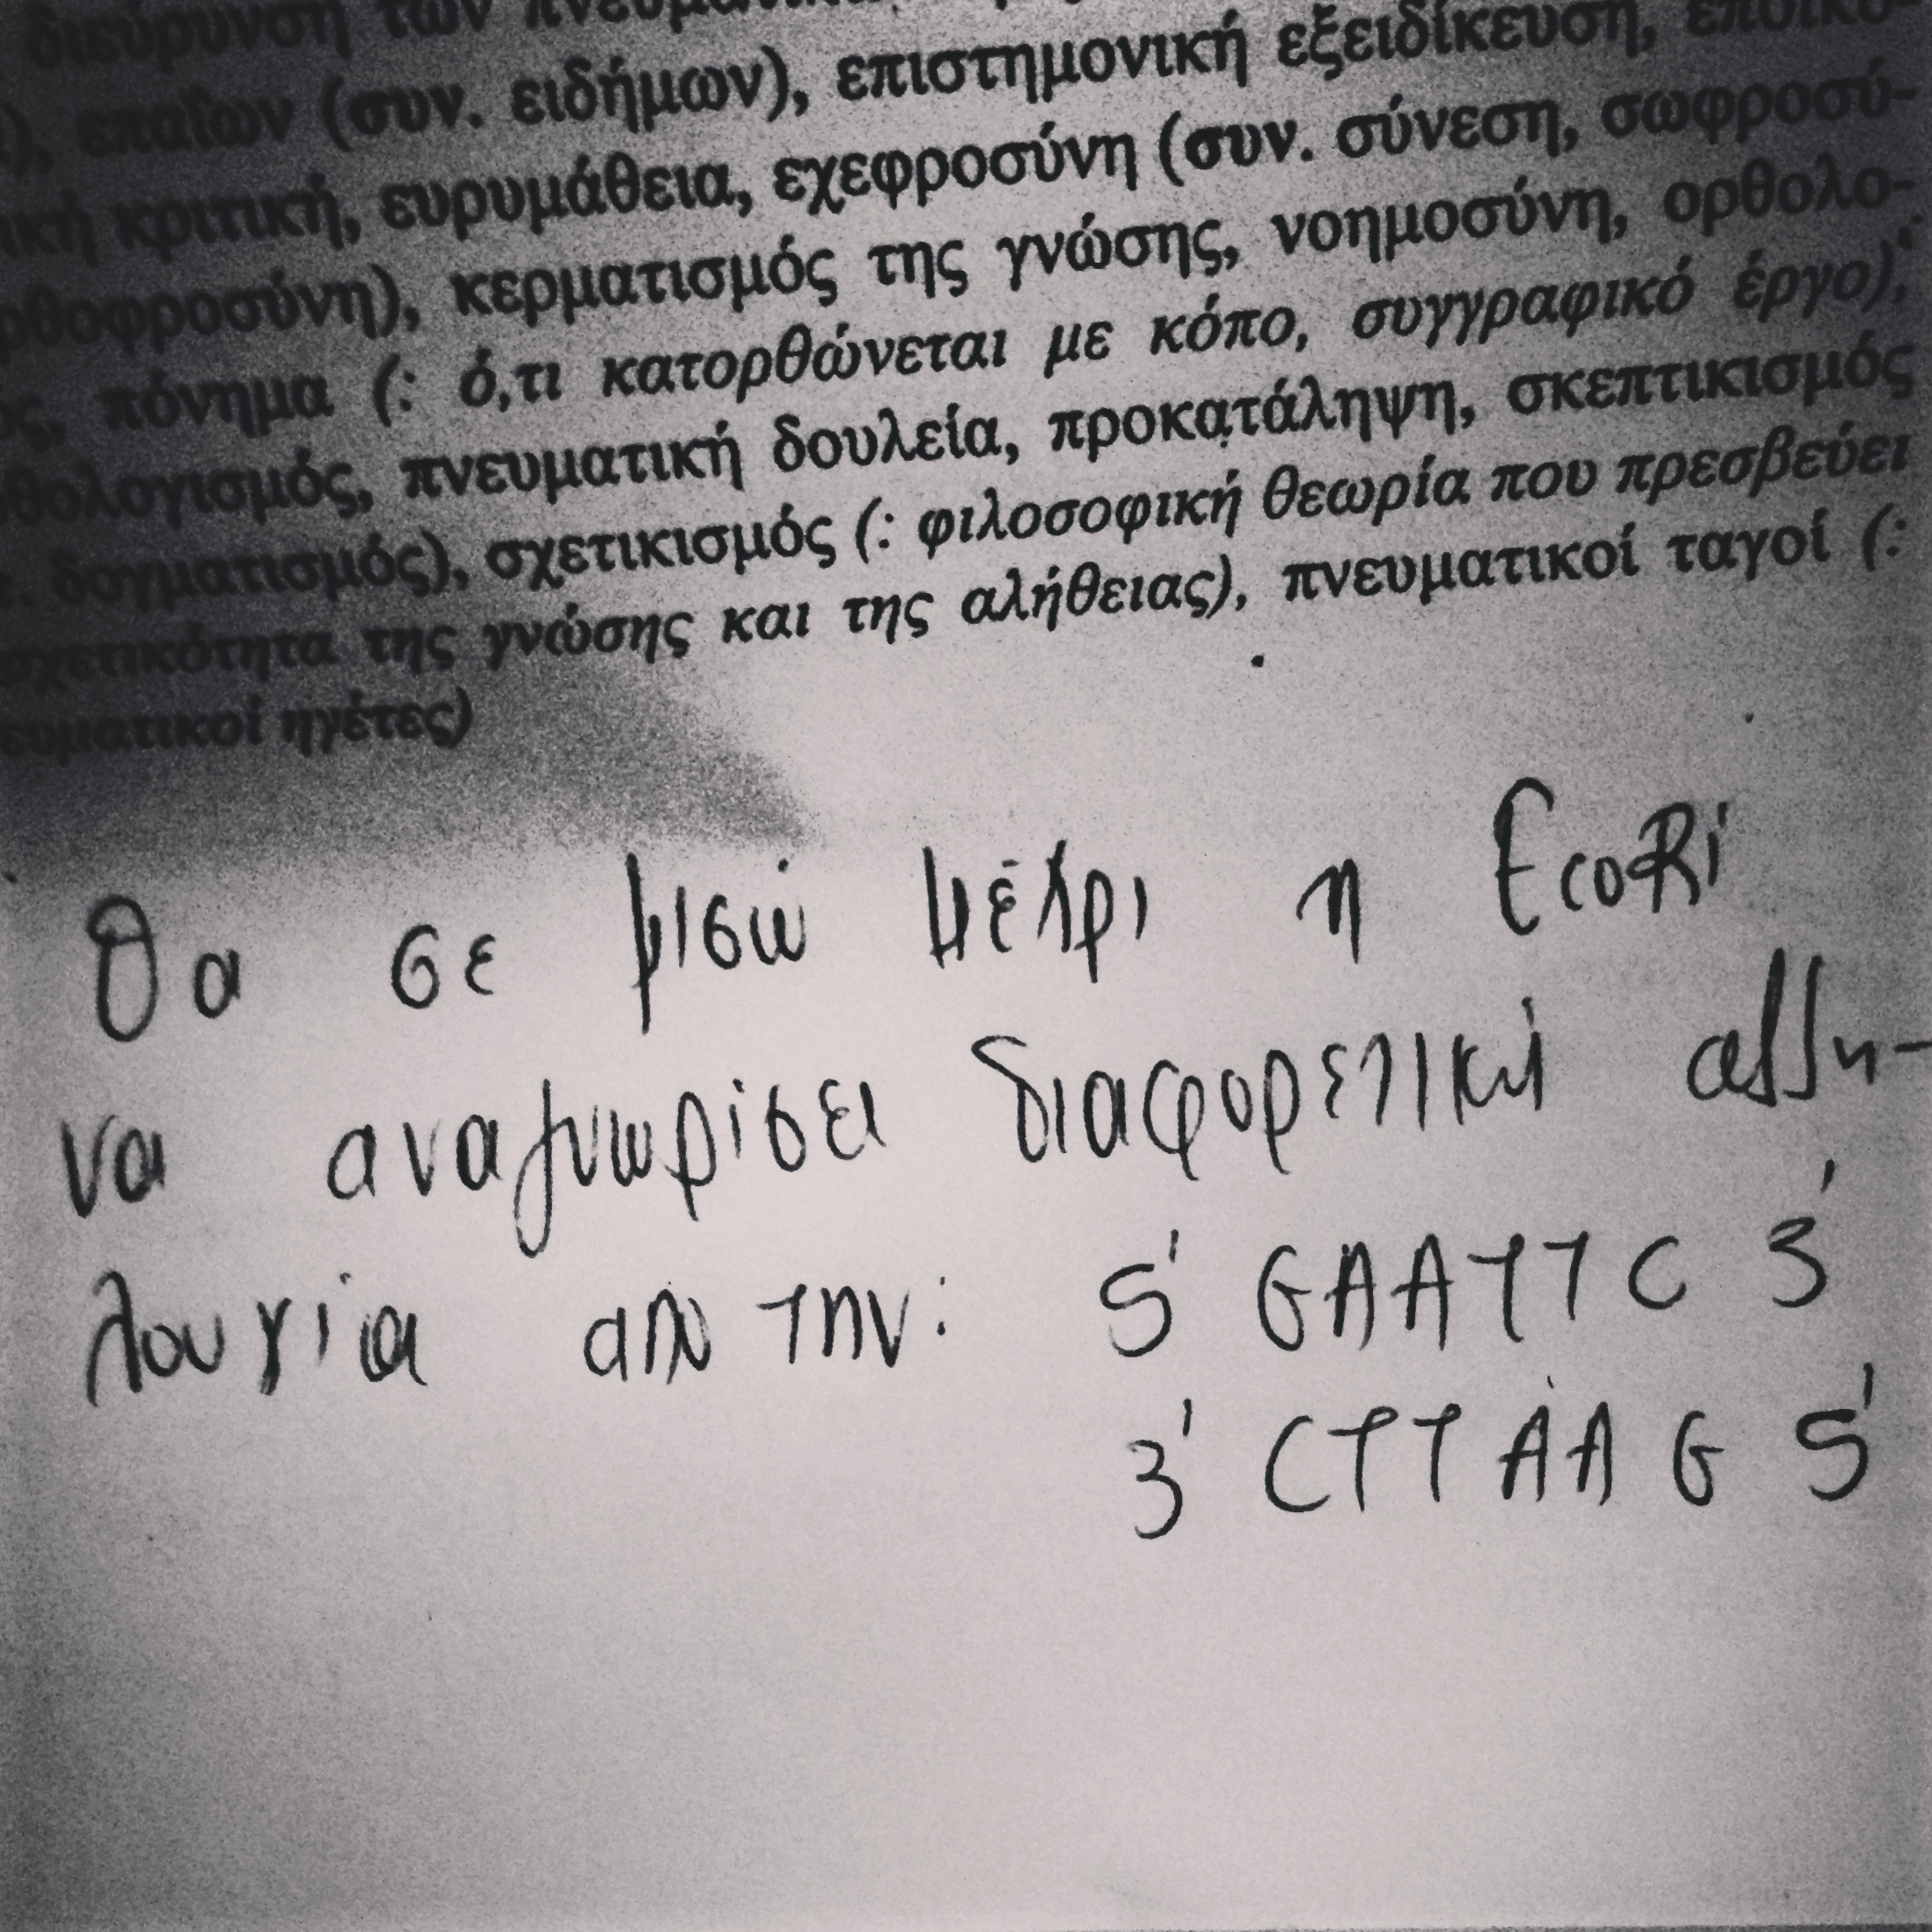 διεύρυνση των
επαΐων (συν. ειδήμων), επιστημονική εξειδίκευση, εποικο-
κριτική, ευρυμάθεια, εχεφροσύνη (συν. σύνεση, σωφροσύ-
ρθοφροσύνη), κερματισμός της γνώσης, νοημοσύνη, ορθολο-
ος, πόνημα (: ό,τι κατορθώνεται με κόπο, συγγραφικό έργο),
θολογισμός, πνευματική δουλεία, προκατάληψη, σκεπτικισμός
δογματισμός), σχετικισμός (: φιλοσοφική θεωρία που πρεσβεύει
σχετικότητα της γνώσης και της αλήθειας), πνευματικοί ταγοί (:
ευματικοί ηγέτες)
Θα σε μισώ μέχρι η EcoRi
να αναγνωρίσει διαφορετική αλλη-
λουχία από την: 5' GAATTC 3'
3' CTTAAG 5'